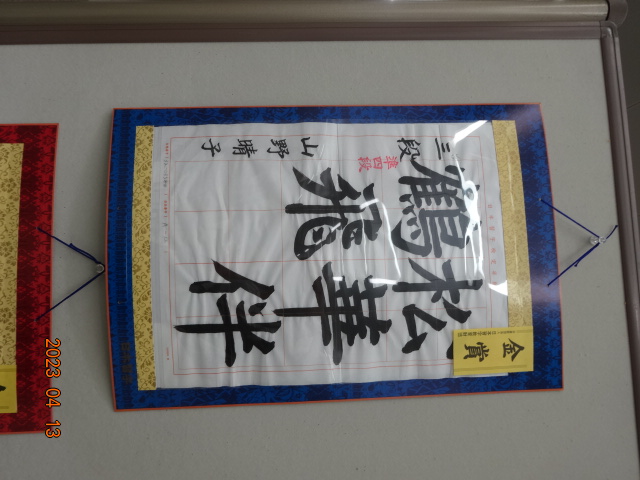 金賞
松華伴
鶴飛
準四段
三段 山野晴子
2023 04 13